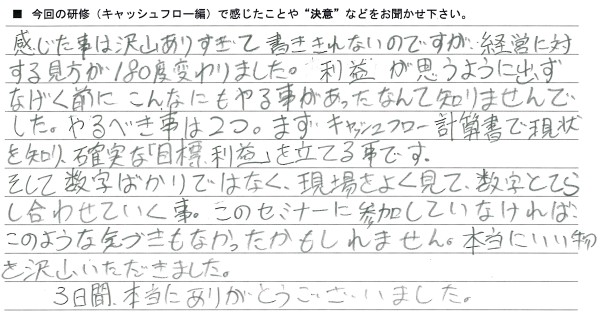 ■ 今回の研修（キャッシュフロー編）で感じたことや“決意”などをお聞かせ下さい。
感じた事は沢山ありすぎて書ききれないのですが、経営に対
する見方が180度変わりました。「利益」が思うように出ず
なげく前にこんなにもやる事があったなんて知りませんで
した。やるべき事は2つ。まずキャッシュフロー計算書で現状
を知り、確実な「目標利益」を立てる事です。
そして数字ばかりではなく、現場をよく見て、数字とてら
し合わせていく事。このセミナーに参加していなければ、
このような気づきもなかったかもしれません。本当にいい物
を沢山いただきました。
3日間、本当にありがとうございました。